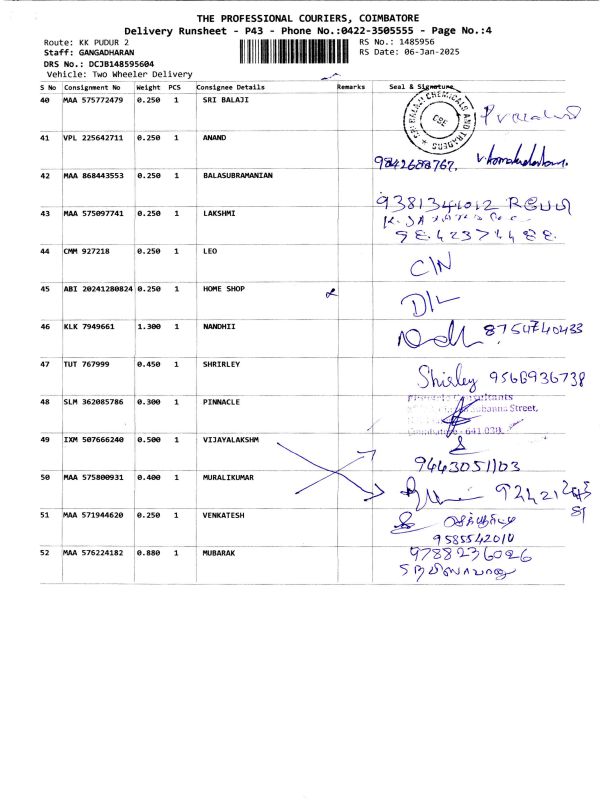 THE PROFESSIONAL COURIERS, COIMBATORE
Delivery Runsheet - P43 - Phone No.:0422-3505555 - Page No.:4
Route: KK PUDUR 2 RS No.: 1485956
Staff: GANGADHARAN RS Date: 06-Jan-2025
DRS No.: DCJB148595604
Vehicle: Two Wheeler Delivery
S No Consignment No Weight PCS Consignee Details Remarks Seal & Signature
40 MAA 575772479 0.250 1 SRI BALAJI
SRI BALAJI CHEMICALS AND TRADERS
CBE
41 VPL 225642711 0.250 1 ANAND
9842688767.
42 MAA 868443553 0.250 1 BALASUBRAMANIAN
9381341012
43 MAA 575097741 0.250 1 LAKSHMI
44 CMM 927218 0.250 1 LEO C/N
45 ABI 20241280824 0.250 1 HOME SHOP D/L
46 KLK 7949661 1.300 1 NANDHII 8754740433
47 TUT 767999 0.450 1 SHRIRLEY Shirley 9566936738
48 SLM 362085786 0.300 1 PINNACLE
Consultants
Street,
Coimbatore - 641 038.
49 IXM 507666240 0.500 1 VIJAYALAKSHM 9443051103
50 MAA 575800931 0.400 1 MURALIKUMAR
51 MAA 571944620 0.250 1 VENKATESH
9585542010
52 MAA 576224182 0.880 1 MUBARAK 9788236026